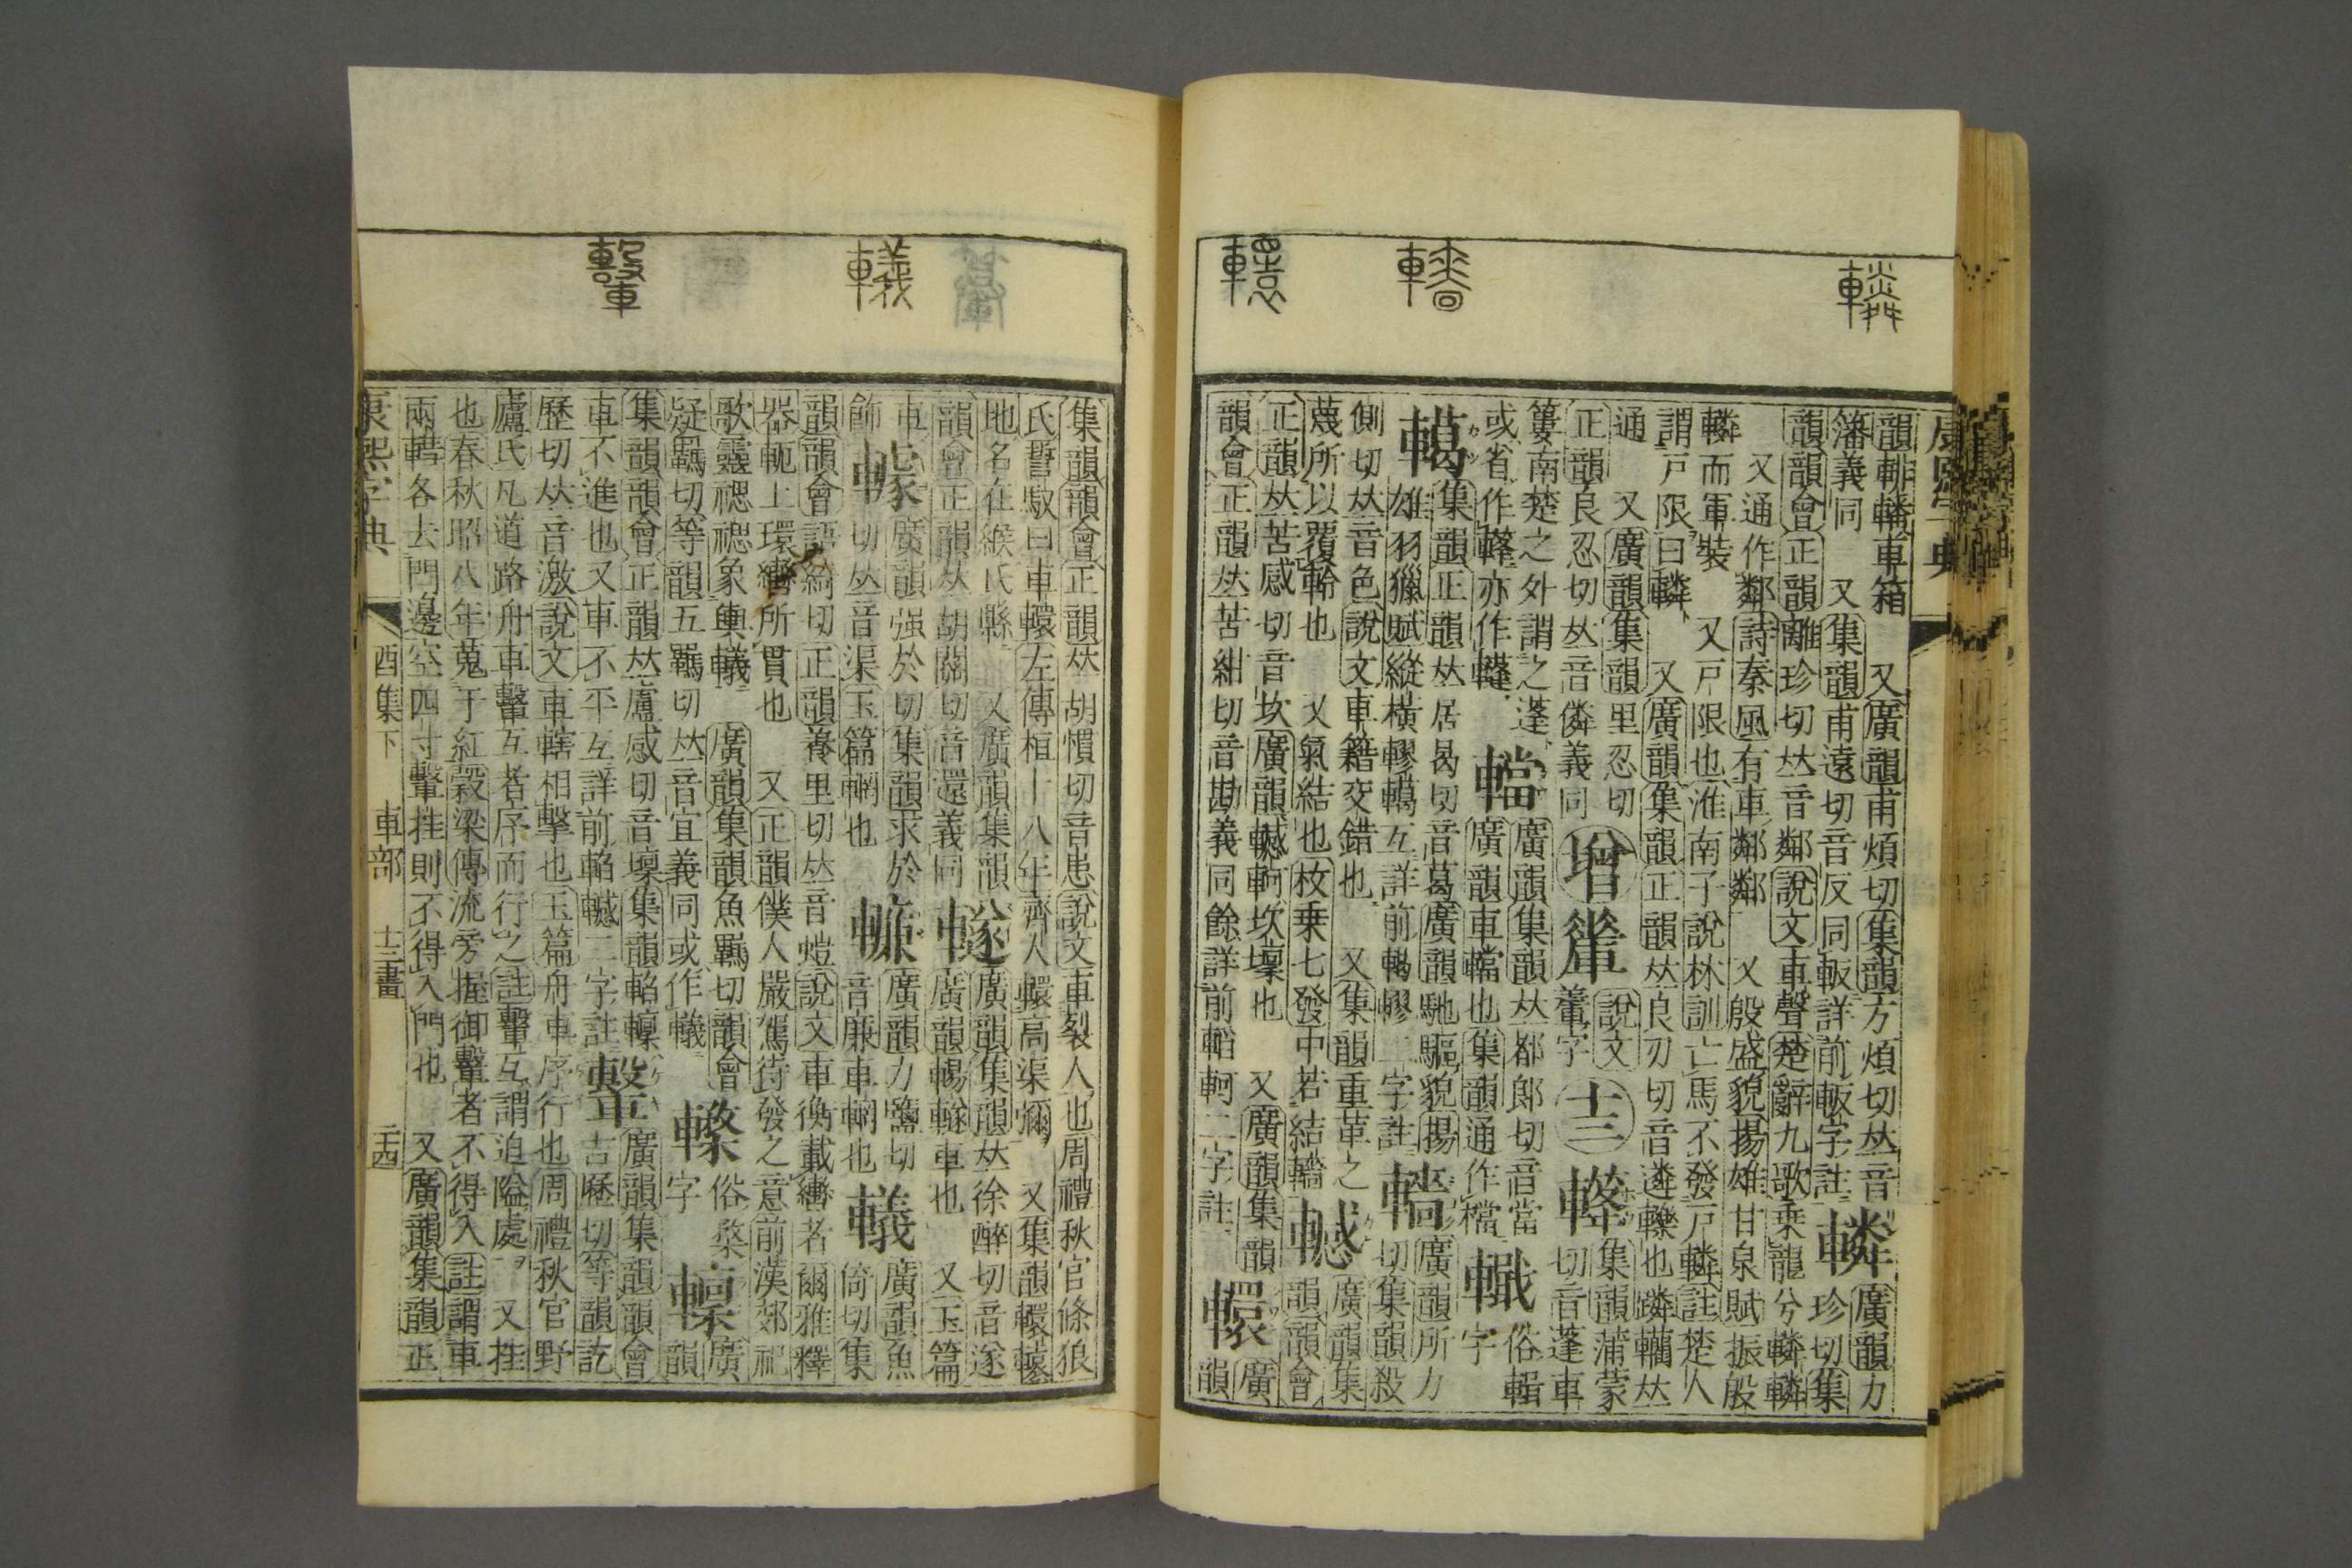 康熙字典
韻軿轓車箱　又廣韻甫煩切集韻方煩切𠀤音
籓義同　又集韻甫遠切音反同軬詳前軬字註
轔
廣韻力
珍切集
韻韻會正韻離珍切𠀤音鄰說文車聲楚辭九歌乗龍兮轔轔
又通作鄰詩秦風有車鄰鄰　又殷盛貌揚雄甘泉賦振殷
轔而軍裝　又戸限也淮南子說林訓亡馬不發戸轔註楚人
謂戸限曰轔　又廣韻集韻正韻𠀤良刃切音遴轢也蹸轥𠀤
通　又廣韻集韻里忍切
正韻良忍切𠀤音嶙義同
增
說文
䡴字
十三
集韻蒲蒙
切音蓬車
簍南楚之外謂之篷
或省作䡫亦作韼
轖
廣韻集韻𠀤都郎切音當
廣韻車轖也集韻通作檔
轗
俗輯
字
轕
集韻正韻𠀤居曷切音葛廣韻馳驅貌揚
雄羽獵賦縱橫轇轕互詳前輵轇二字註
轖
廣韻所力
切集韻殺
側切𠀤音色說文車籍交錯也　又集韻重革之
蔑所以覆軨也　又氣結也枚乗七發中若結轖
轗
廣韻集
韻韻會
正韻𠀤苦感切音坎廣韻轗軻坎壈也　又廣韻集韻
韻會正韻𠀤苦紺切音勘義同餘詳前輡軻二字註
轘
廣
韻
集韻韻會正韻𠀤胡慣切音患說文車裂人也周禮秋官條狼
氏誓馭曰車轘左傳桓十八年齊人轘高渠彌　又集韻轘轅
地名在緱氏縣　又廣韻集韻
韻會正韻𠀤胡關切音還義同
䡵
廣韻集韻𠀤徐醉切音遂
廣韻轊䡵車也　又玉篇
車
飾
䡶
廣韻强於切集韻求於
切𠀤音渠玉篇輞也
䡷
廣韻力鹽切
音廉車輞也
轙
廣韻魚
倚切集
韻韻會語綺切正韻養里切𠀤音螘說文車衡載轡者爾雅釋
器軛上環轡所貫也　又正韻僕人嚴駕待發之意前漢郊祀
歌靈禗禗象輿轙　廣韻集韻魚羈切韻會
疑羈切等韻五羈切𠀤音宜義同或作䡾
俗
字
轈
廣
韻
集韻韻會正韻𠀤盧感切音壈集韻輡壈
車不進也又車不平互詳前輡轗二字註
轚
廣韻集韻韻會
吉歷切等韻訖
歷切𠀤音激說文車轄相擊也玉篇舟車序行也周禮秋官野
廬氏凡道路舟車轚互者序而行之註轚互謂迫隘處　又挂
也春秋昭八年蒐于紅穀梁傳流旁握御轚者不得入註謂車
兩轊各去門邊空四寸轚挂則不得入門也　又廣韻集韻正
康熙字典　酉集下　車部　十三畫